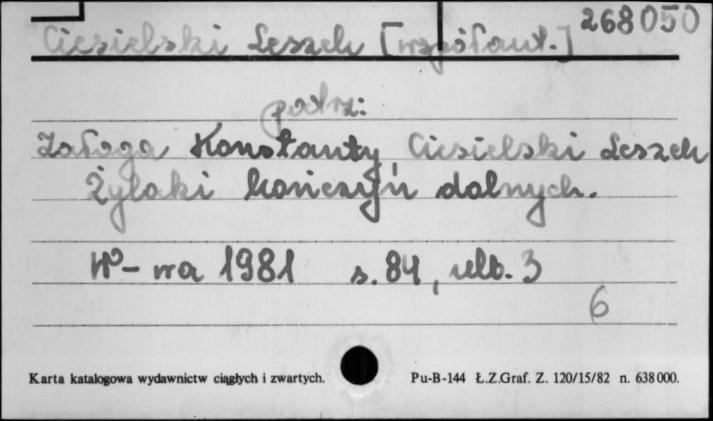 268050
Ciesielski Leszek [współaut.]
patrz:
Załoga Konstanty, Ciesielski Leszek
Żylaki kończyn dolnych.
W-wa 1981 s. 84, nlb. 3
6
Karta katalogowa wydawnictw ciągłych i zwartych. Pu-B-144 Ł.Z.Graf. Z. 120/15/82 n. 638000.